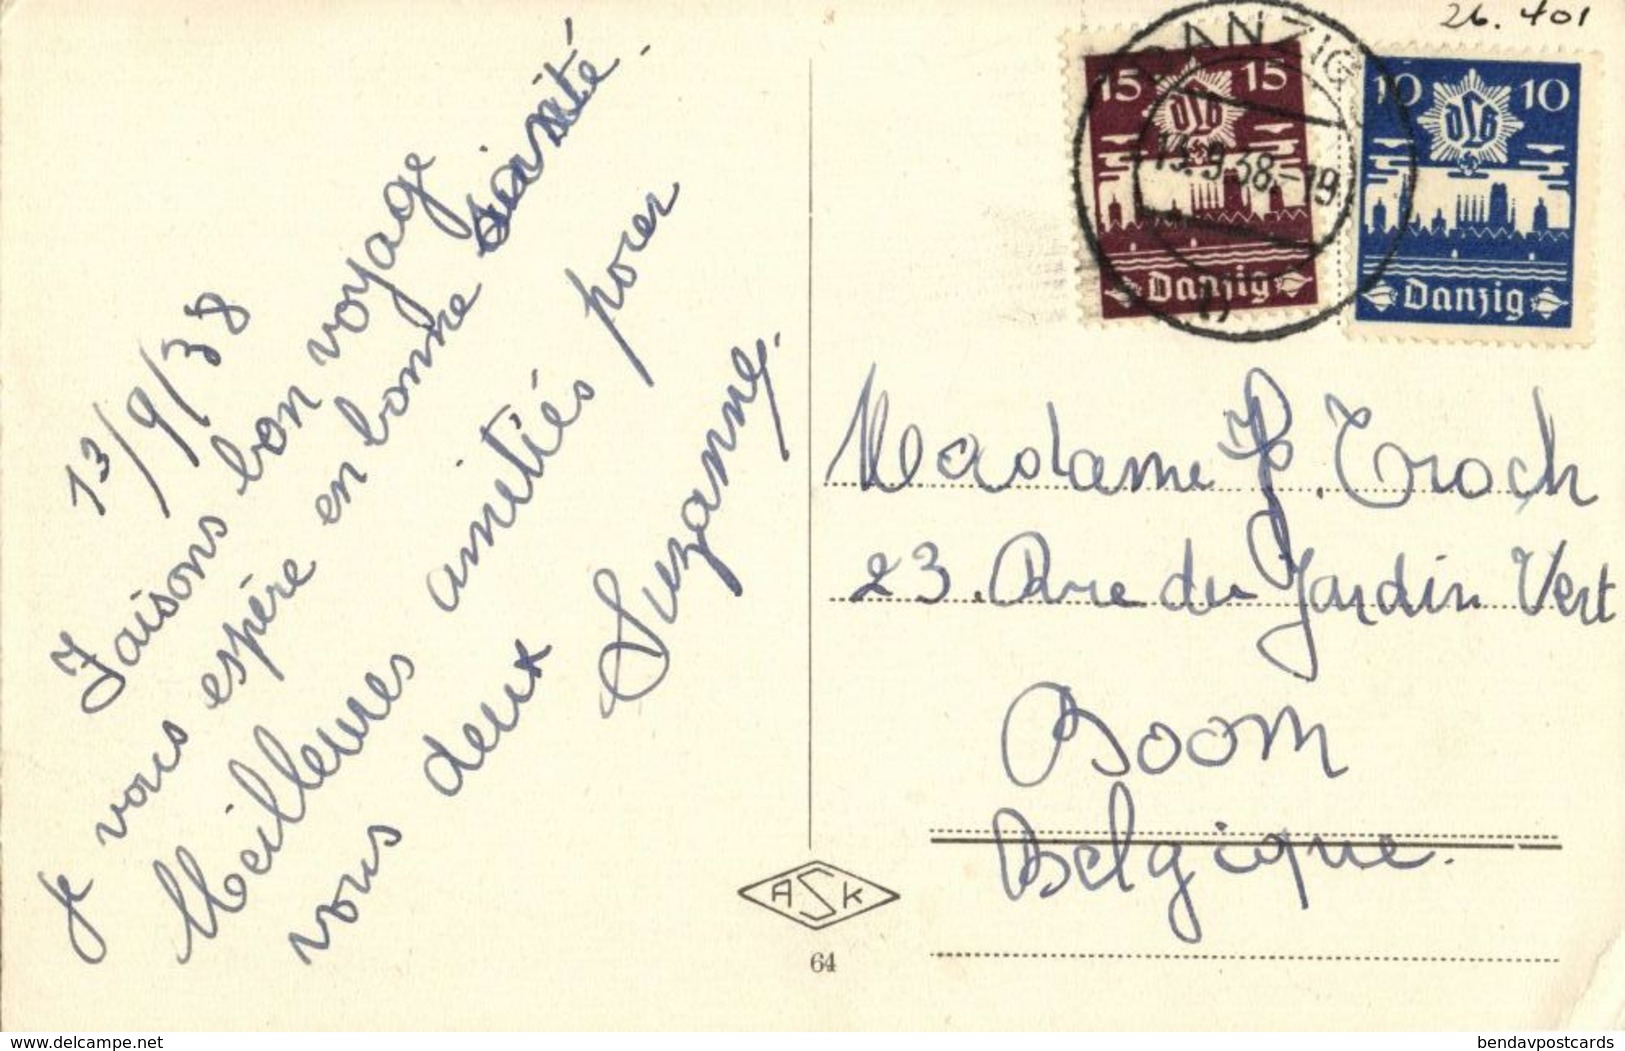 13/9/38
Faisons bon voyage
Je vous espère en bonne santé.
Meilleures amitiés pour
vous deux
Suzanne.
26.401
DANZIG
13.9.38.-19
15 15
Danzig
10 10
Danzig
Madame J. Troch
23. Rue du Jardin Vert
Boom
Belgique.
ASK
64
www.delcampe.net
bendavpostcards